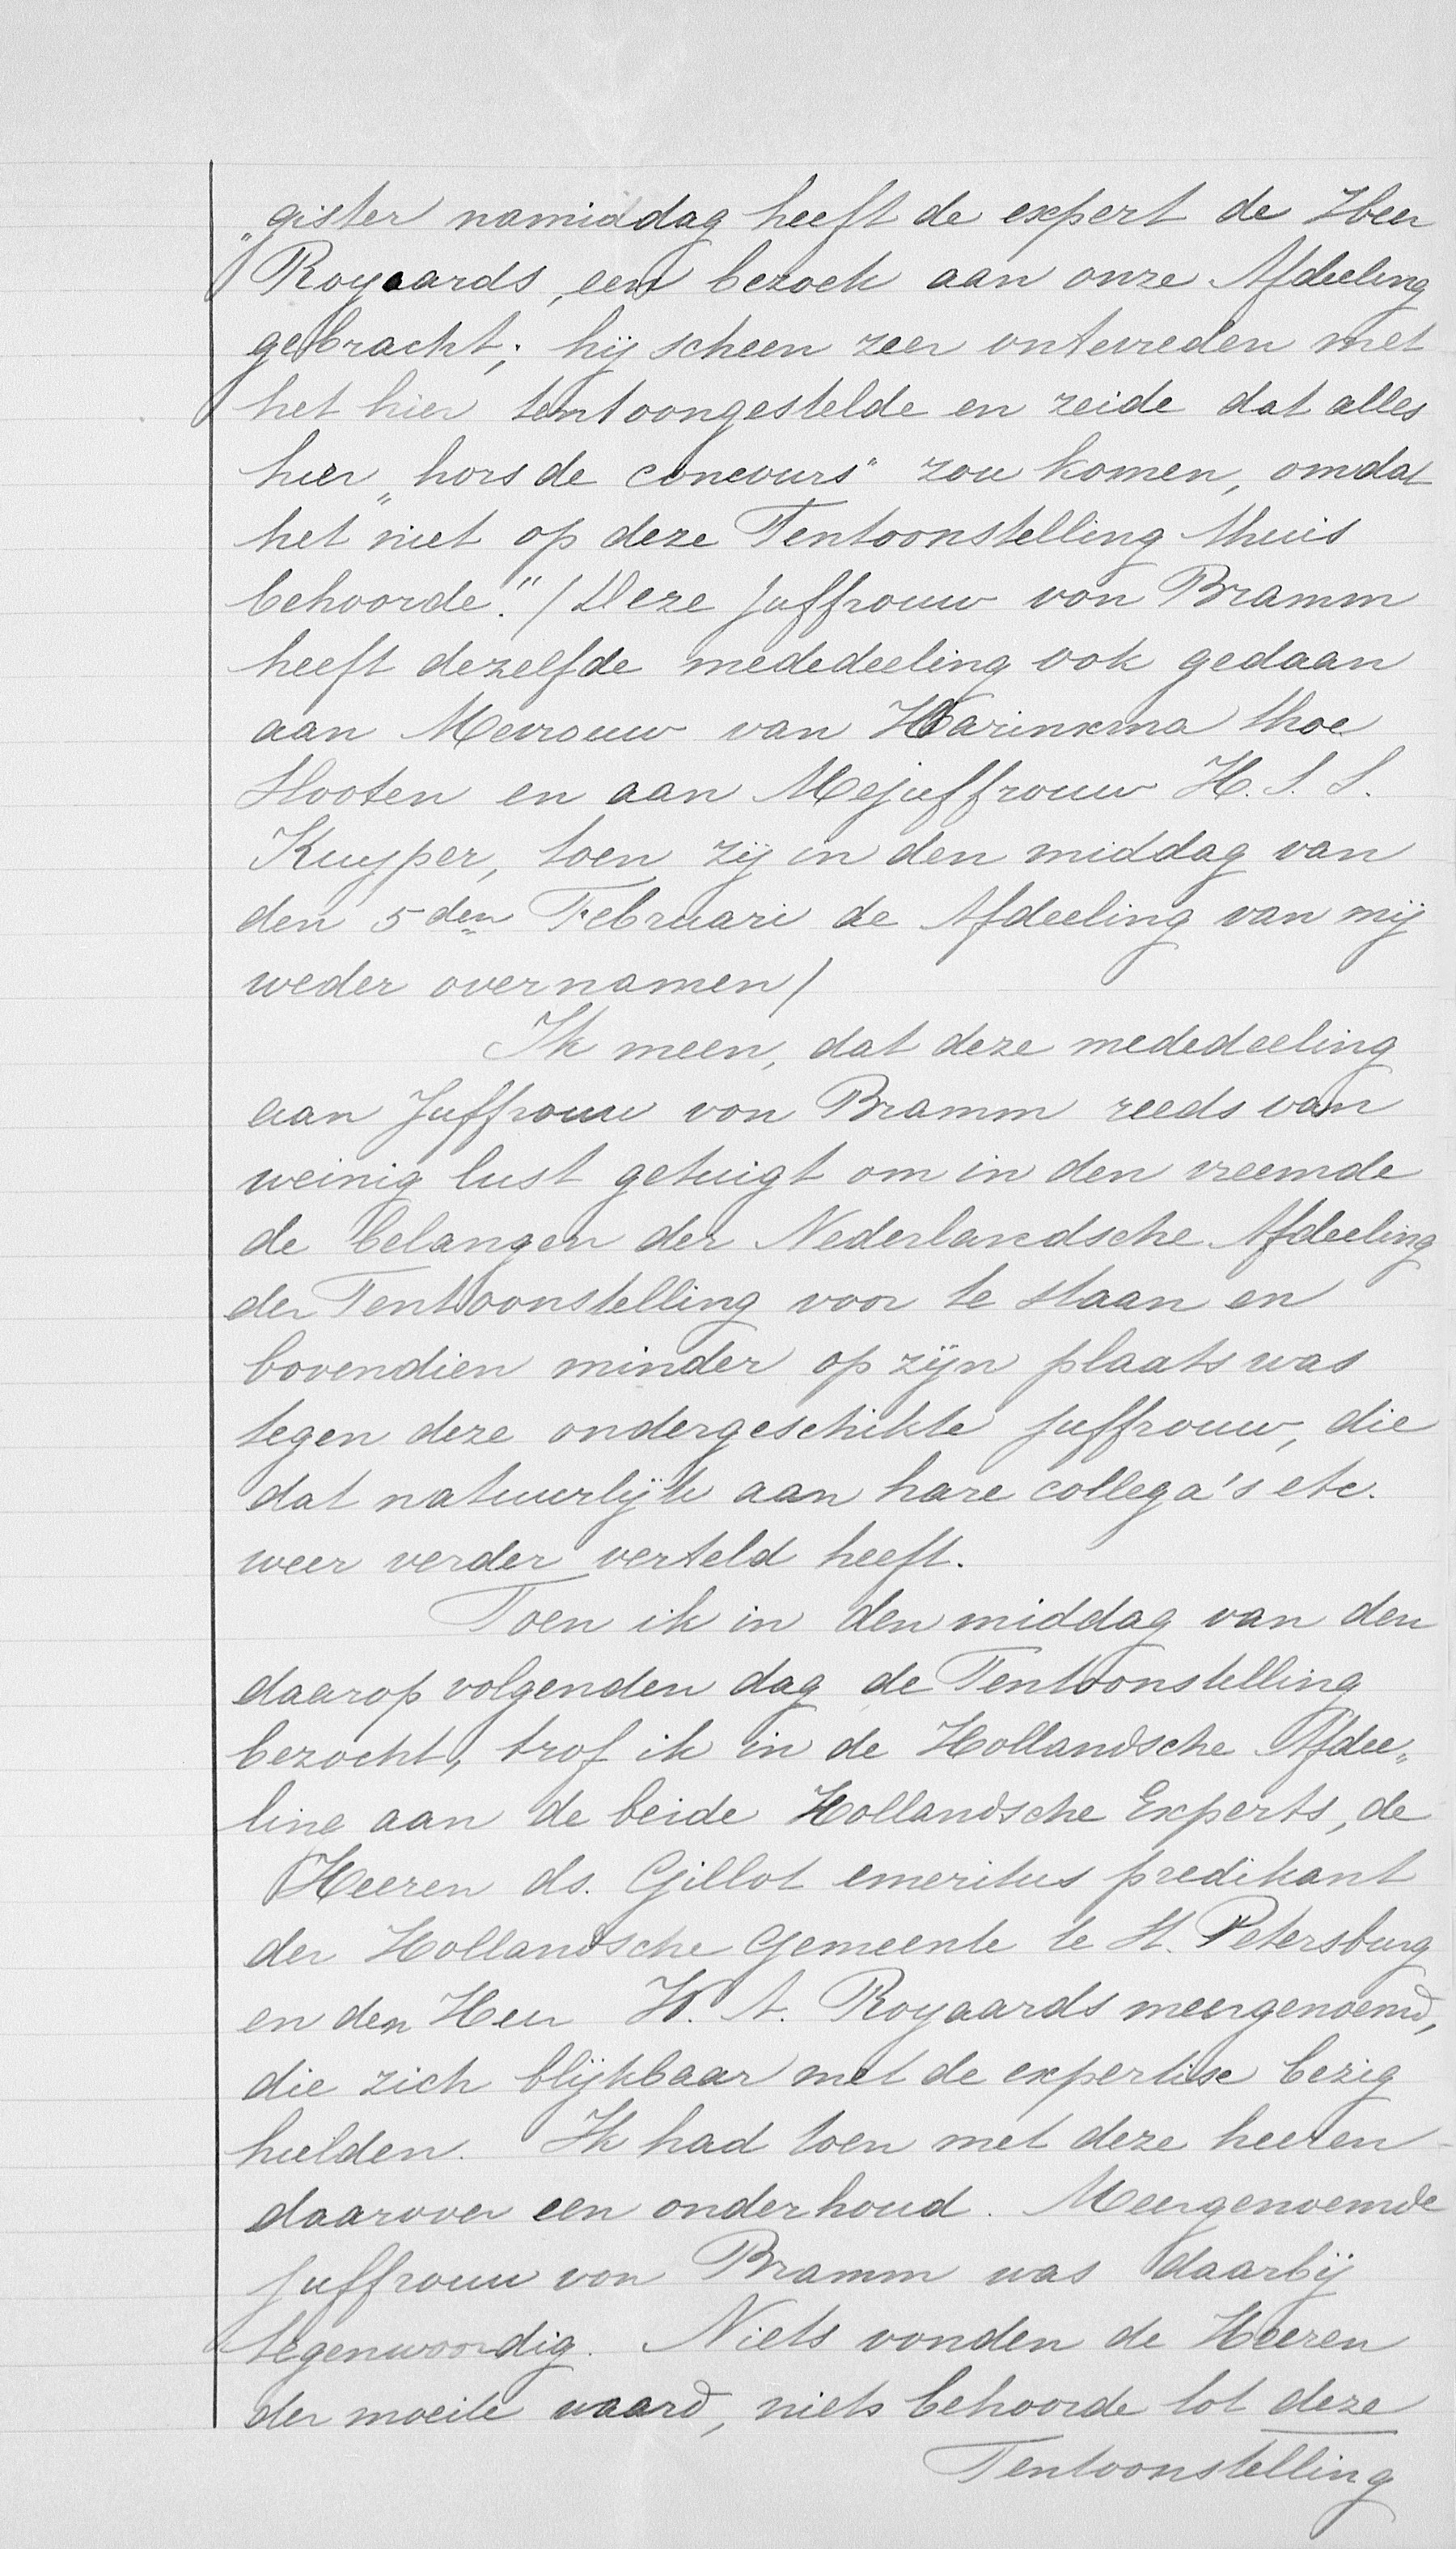 „gister namiddag heeft de expert de Heer
Royaards, een bezoek aan onze Afdeeling
gebracht; hij scheen zeer ontevreden met
het hier tentoongestelde en zeide dat alles
hier „hors de concours" zou komen, omdat
het niet op deze Tentoonstelling thuis
behoorde." / Deze Juffrouw von Bramm
heeft dezelfde mededeeling ook gedaan
aan Mevrouw van Harinxma thoe
Slooten en aan Mejuffrouw H. S. S.
Kuyper, toen zij in den middag van
den 5den Februari de Afdeeling van mij
weder overnamen/
Ik meen, dat deze mededeeling
aan Juffrouw von Bramm reeds van
weinig lust getuigt om in den vreemde
de belangen der Nederlandsche Afdeeling
der Tentoonstelling voor te staan en
bovendien minder op zijn plaats was
tegen deze ondergeschikte juffrouw, die
dat natuurlijk aan hare collega's etc.
weer verder verteld heeft.
Toen ik in den middag van den
daarop volgenden dag de Tentoonstelling
bezocht, trof ik in de Hollandsche Afdee„
line aan de beide Hollandsche Experts, de
Heeren ds. Gillot emeritus predikant
der Hollandsche Gemeente te St. Petersburg
en den Heer H. A. Royaards meergenoemd,
die zich blijkbaar met de expertise bezig
hielden. Ik had toen met deze heeren
daarover een onderhoud. Meergenoemde
Juffrouw von Bramm was daarbij
tegenwoordig. Niets vonden de Heeren
der moeite waard, niets behoorde tot deze
Tentoonstelling